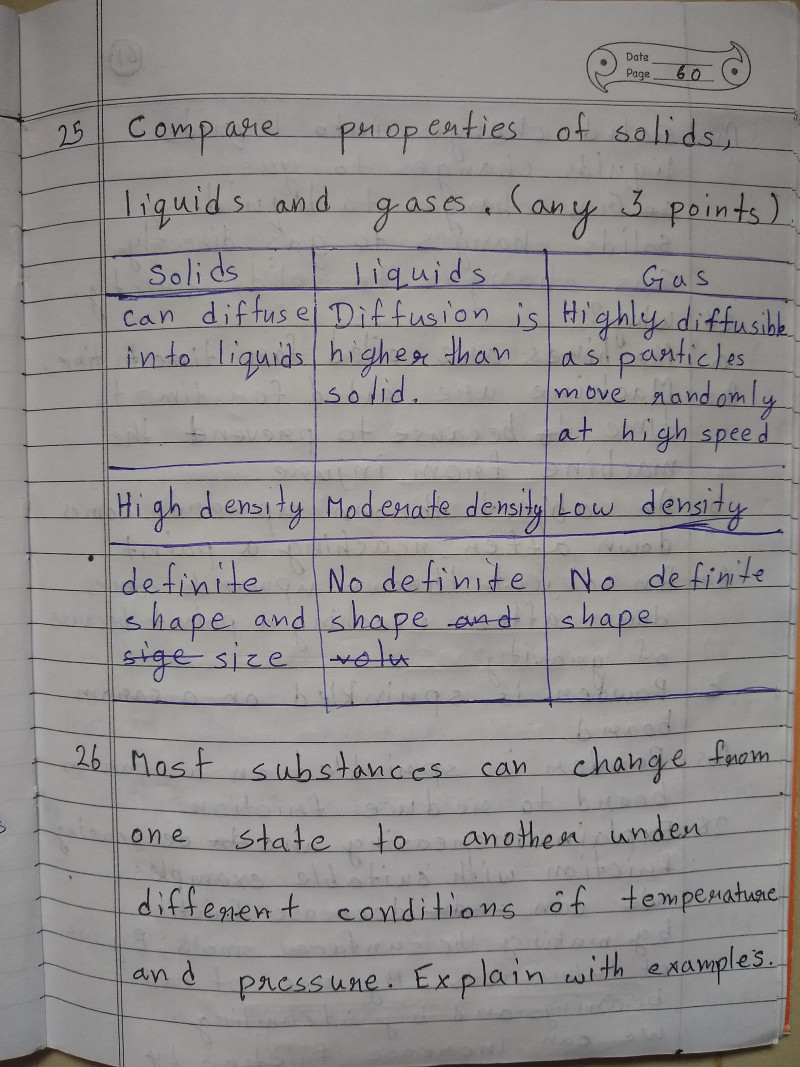 Date
Page 60
25 Compare properties of solids,
liquids and gases. (any 3 points)
Solids liquids Gas
can diffuse Diffusion is Highly diffusible
into liquids higher than as particles
solid. move randomly
at high speed
High density Moderate density Low density
definite No definite No definite
shape and shape and shape
sige size volu
26 Most substances can change from
one state to another under
different conditions of temperature
and pressure. Explain with examples.